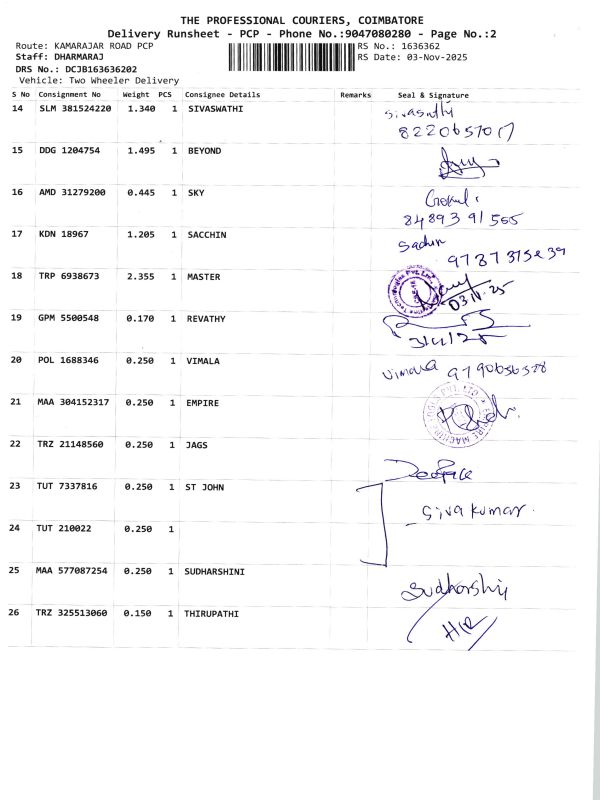 THE PROFESSIONAL COURIERS, COIMBATORE
Delivery Runsheet - PCP - Phone No.:9047080280 - Page No.:2
Route: KAMARAJAR ROAD PCP
RS No.: 1636362
Staff: DHARMARAJ
RS Date: 03-Nov-2025
DRS No.: DCJB163636202
Vehicle: Two Wheeler Delivery
S No Consignment No Weight PCS Consignee Details Remarks Seal & Signature
14 SLM 381524220 1.340 1 SIVASWATHI
15 DDG 1204754 1.495 1 BEYOND
16 AMD 31279200 0.445 1 SKY
Gokul
17 KDN 18967 1.205 1 SACCHIN
18 TRP 6938673 2.355 1 MASTER
19 GPM 5500548 0.170 1 REVATHY
3/11/25
20 POL 1688346 0.250 1 VIMALA Vimala
21 MAA 304152317 0.250 1 EMPIRE
22 TRZ 21148560 0.250 1 JAGS
23 TUT 7337816 0.250 1 ST JOHN
Sivakumar
24 TUT 210022 0.250 1
25 MAA 577087254 0.250 1 SUDHARSHINI
26 TRZ 325513060 0.150 1 THIRUPATHI